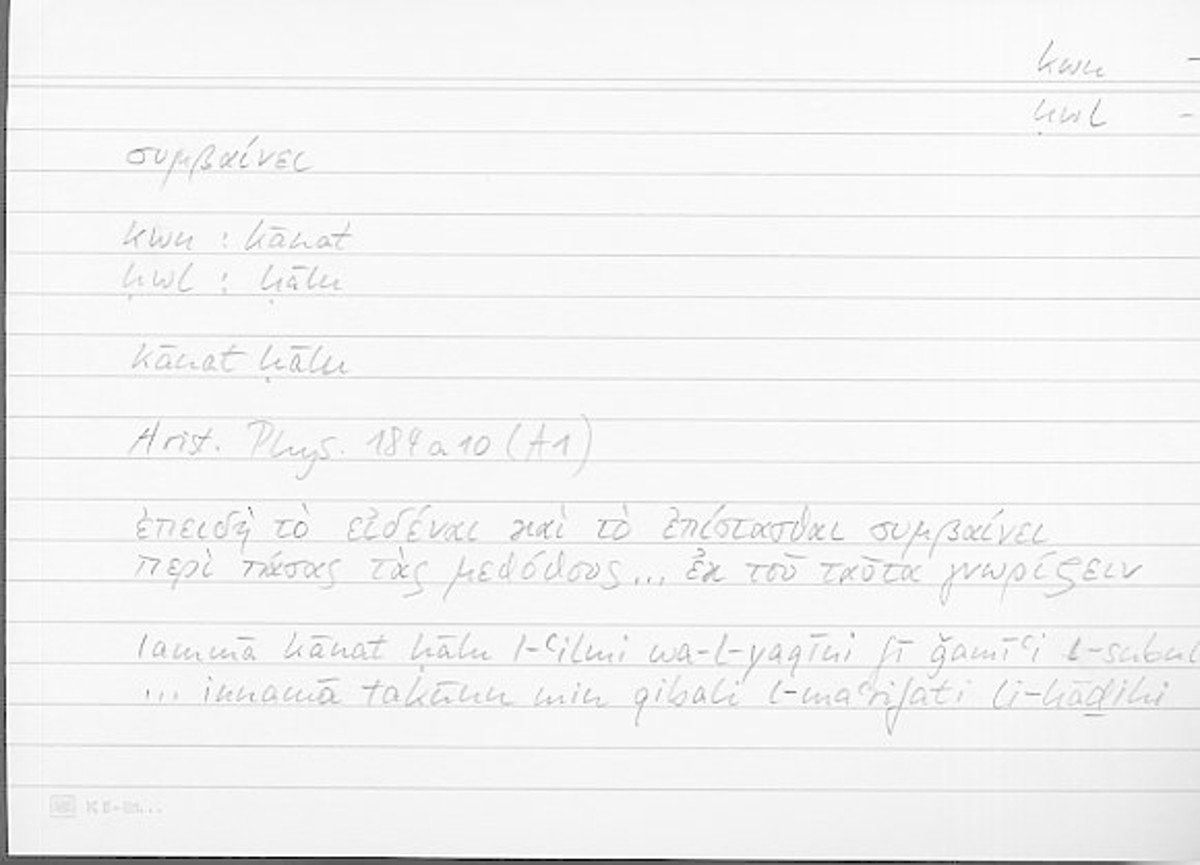 kwn -
ḥwl -
συμβαίνει
kwn : kānat
ḥwl : ḥālu
kānat ḥālu
Arist. Phys. 184a10 (A1)
ἐπειδὴ τὸ εἰδέναι καὶ τὸ ἐπίστασθαι συμβαίνει
περὶ πάσας τὰς μεθόδους... ἐκ τοῦ ταῦτα γνωρίζειν
lammā kānat ḥālu l-ʿilmi wa-l-yaqīni fī ǧamīʿi l-subul
... innamā takūnu min qibali l-maʿrifati li-hāḏihi